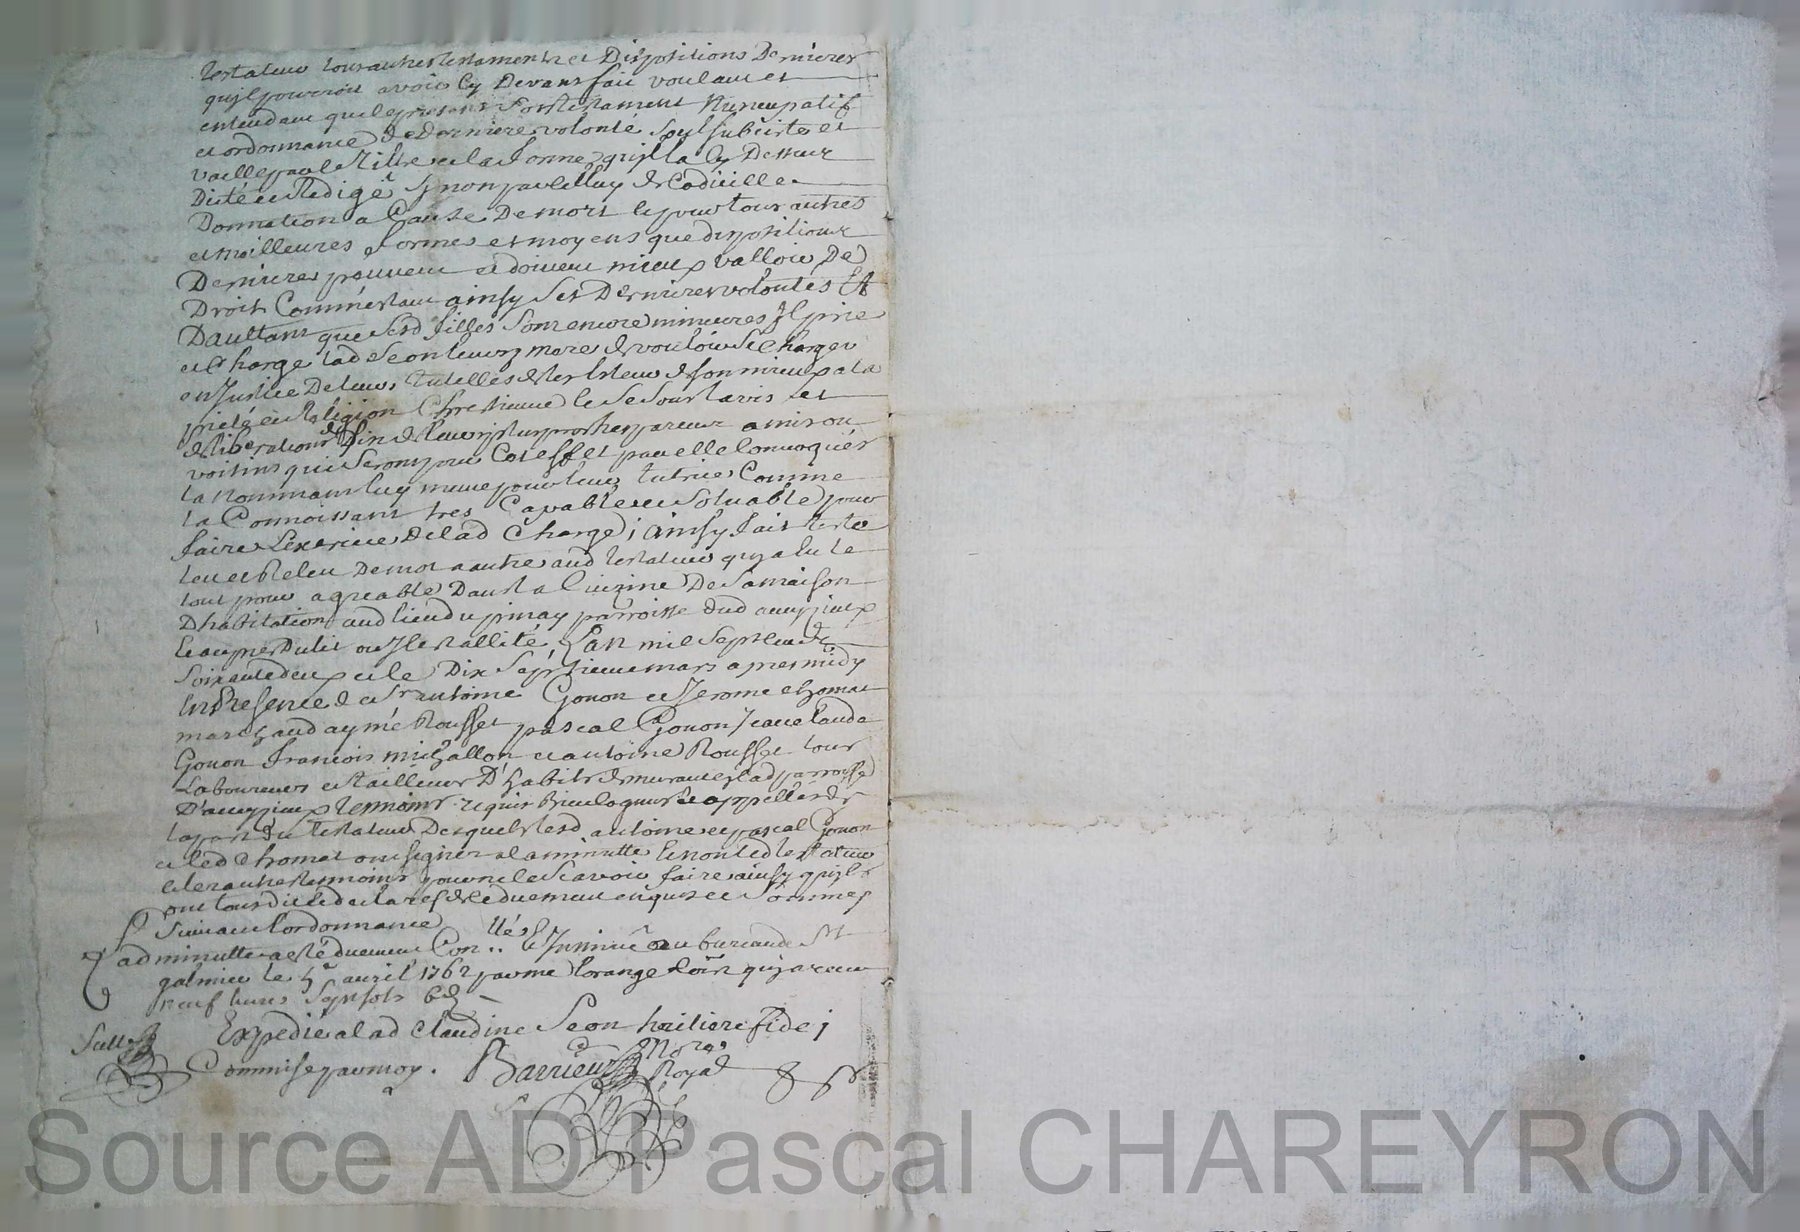 testateur tous autres testaments et Dispositions Dernieres
quil pourroit avoir cy Devant fait voulant et
entendant que le present son testament Nuncupatif
et ordonnance de Derniere volonté soyt subciste et
vaille par le Titre et la forme quil la cy Dessus
Dicté et Redigé synon par celluy de Codicille
Donnation a Cause De mort et pour tous autres
et meilleures formes et moyens que dispositions
Dernieres peuvent et doivent mieux valloir De
Droit Comme estant ainsy ses Dernieres volontés Et
Daultant que sesd filles sont encore mineures Il prie
et Charge lad Seon leurs mere de vouloir se Charger
en Justice De leurs tutelles de les Eslever de son mieux a la
pieté et Religion Chrestienne le De sous lavis et
deliberations de six de leurs plus proches parents amis ou
voisins qui seront pour Cet effet par elle Convoqués
la Nommant luy meme pour leurs tutrice Comme
la Connoissant tres Capable et soluable pour
faire Lexercice De lad Charge ; ainsy fait testé
leu et Releu De mot a autre aud testateur quy a eu le
tout pour agreable Dans la Cuizine De sa maison
Dhabitation aud lieu du pinay parroisse dud aveyzieux
et aupres Du lit ou Il est allité, Lan mil sept cent
soixante deux et le Dix septieme mars apres midy
En Presence de sr antoine Gonon et Jerome thomas
marchand aymé Rousset pascal Gonon Jean claude
Gonon francois michallon et antoine Rousset tous
Laboureurs et tailleur D'habits demeurant en lad parroisse
D'aveyzieux temoins requis bien Cognus et appellés de
la part du testateur Desquels lesd antoine et pascal Gonon
et led thomas ont signé a la minutte Et non led testateur
et les autres temoins pour ne le scavoir faire ainsy quils
ont tous dit et declaré de ce duement enquis et sommés
suivant lordonnance
lad minutte a esté duement Con..llée & Insinué au bureau de St
galmier le 5e avril 1762 par me Lorange Coîs quy a receu
neuf livres sept sols 6d
Expedié a lad Claudine Seon heritiere fidei
Commise par moy.
Barrieu Nore
Royal
Source AD Pascal CHAREYRON